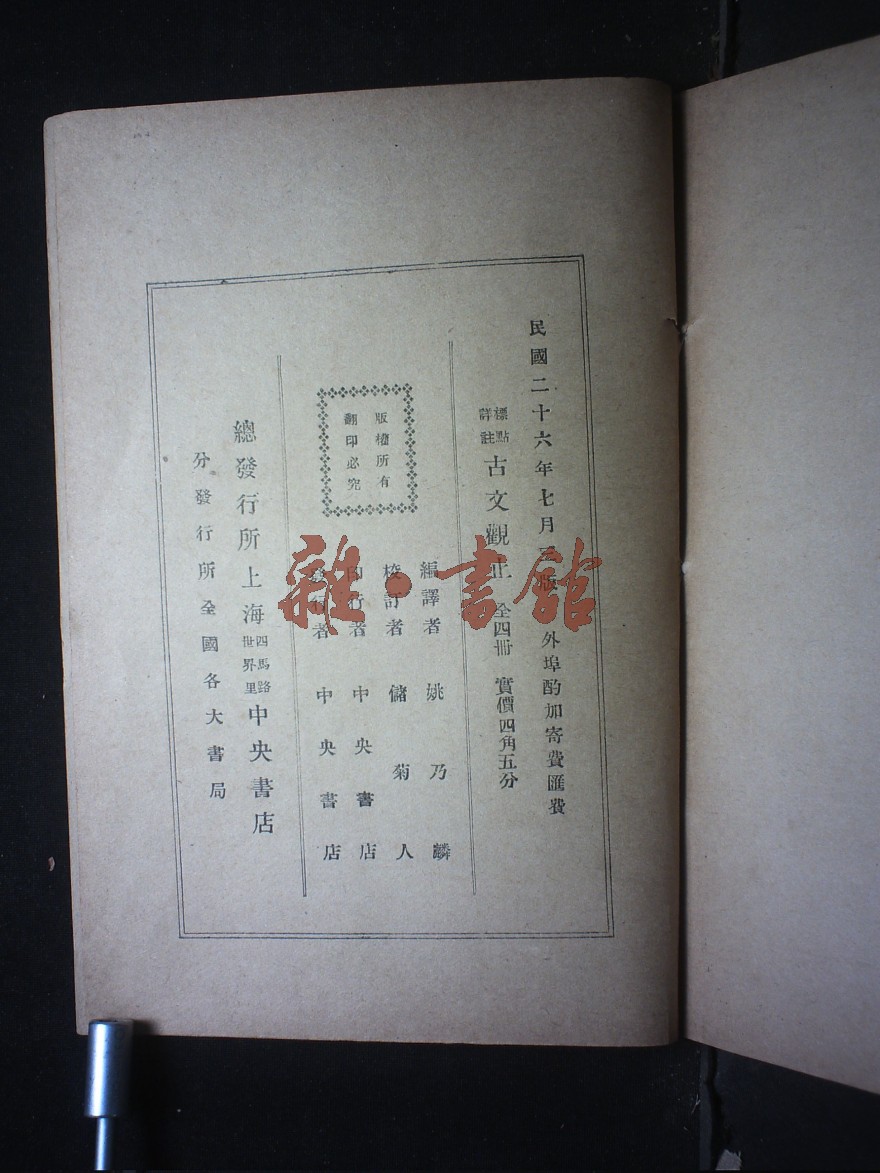 民國二十六年七月三版
標點
詳註
古文觀止 全四冊 實價四角五分
外埠酌加寄費匯費
編譯者 姚乃麟
校訂者 儲菊人
印行者 中央書店
發行者 中央書店
版權所有
翻印必究
總發行所上海四馬路世界里中央書店
分發行所全國各大書局
雜·書館